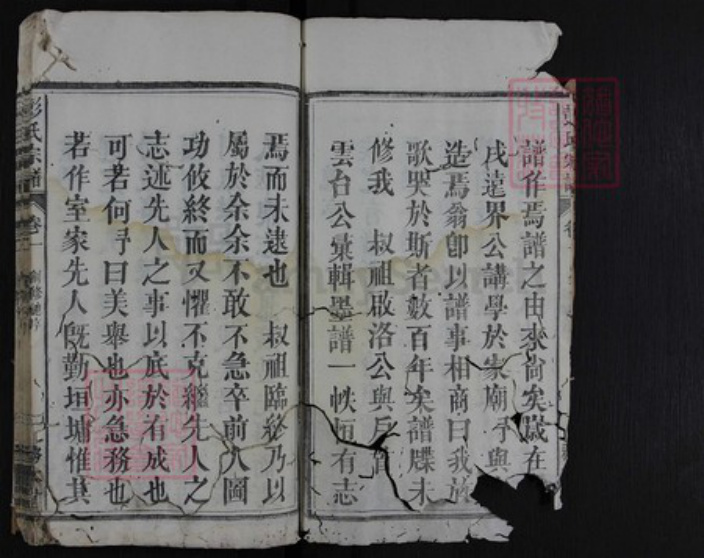 譜作焉譜之由來尚矣歲在
戌遠界公講學於家廟予與
造焉翁卽以譜事相商曰我
歌哭於斯者數百年矣譜牒未
修我 叔祖啟洛公與戶首
雲台公彙輯墨譜一帙恒有志
焉而未逮也 叔祖臨終乃以
屬於余余不敢不急卒前人圖
功攸終而又懼不克繼先人之
志述先人之事以底於有成也
可若何予曰美舉也亦急務也
若作室家先人旣勤垣墉惟其
彭氏宗譜 卷一